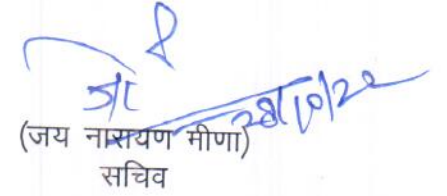 28/10/20
(जय नारायण मीणा)
सचिव